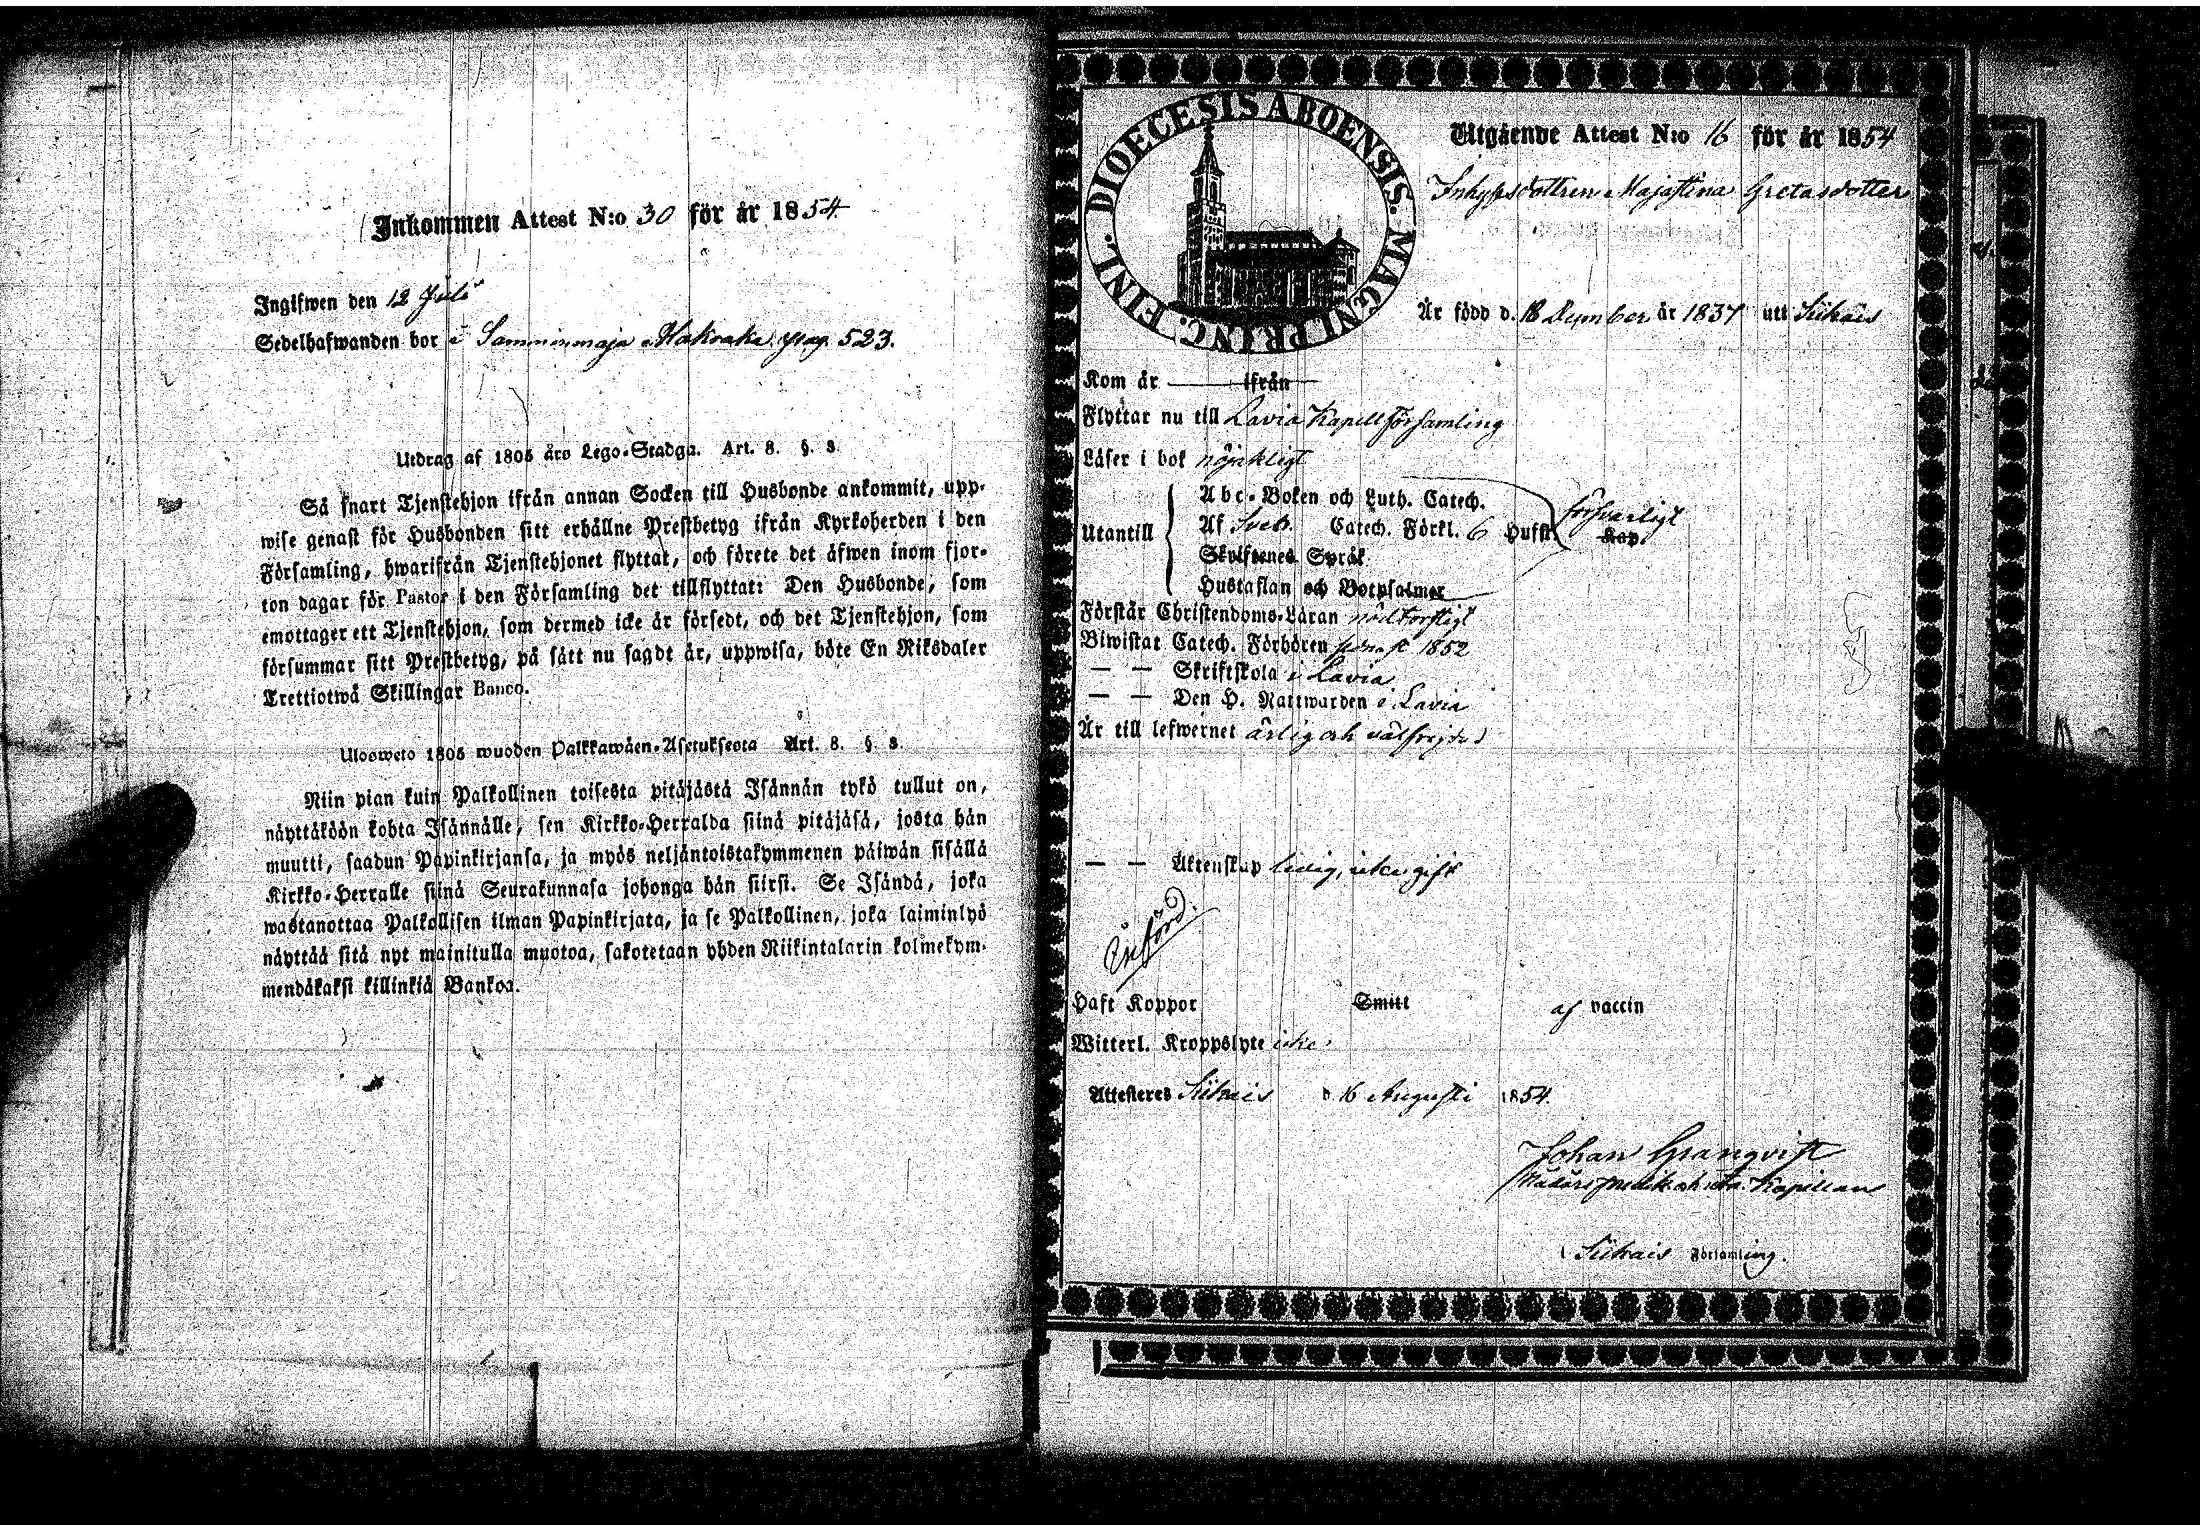 Inkommen Attest N:o 30 för år 1854
Ingifwen den 12 Juli
Sedelhafwanden bor i Samminmaja pag 523.
Utdrag af 1805 års Lego-Stadga. Art. 8. §. 8
Så snart Tjenstehjon ifrån annan Socken till Husbonde ankommit, upp-
wise genast för Husbonden sitt erhållne Prestbetyg ifrån Kyrkoherden i den
Församling, hwarifrån Tjenstehjonet flyttat, och förete det äfwen inom fjor-
ton dagar för Pastor i den Församling det tillflyttat: Den Husbonde, som
emottager ett Tjenstehjon, som dermed icke är försedt, och det Tjenstehjon, som
försummar sitt Prestbetyg, på sätt nu sagdt är, uppwisa, böte En Riksdaler
Trettiotwå Skillingar Banco.
Ulosweto 1805 wuoden Palkkawäen-Asetuksesta Art. 8. §. 8.
Niin pian kuin Palkollinen toisesta pitäjästä Isännän tykö tullut on,
näyttäköön kohta Isännälle, sen Kirkko-Herralda siinä pitäjäsä, josta hän
muutti, saadun Papinkirjansa, ja myös neljäntoistakymmenen päiwän sisällä
Kirkko-Herralle siinä Seurakunnasa johonga hän siirsi. Se Isändä, joka
wastanottaa Palkollisen ilman Papinkirjata, ja se Palkollinen, joka laiminlyö
näyttää sitä nyt mainitulla muotoa, sakotetaan yhden Riikintalarin kolmekym-
mendäkaksi killinkiä Bankoa.
DIOECESIS ABOENSIS. MAGNI PRINC. FINL.
Utgående Attest N:o 16 för år 1854
Inhysdottren Majastina Gretasdotter
Är född d. 18 December år 1837 utt Siikais
Kom år ifrån
Flyttar nu till Lavia Kapellförsamling
Läser i bok nöjaktigt
Utantill
Abc-Boken och Luth. Catech.
Af Sveb. Catech. Förkl. 6 Hufst. Kap. försvarligt
Skriftenes Språk
Hustaflan och Botpsalmer
Förstår Christendoms-Läran nödtorftigt
Biwistat Catech. Förhören senast 1852
— — Skriftskola i Lavia
— — Den H. Nattwarden i Lavia
Är till lefwernet ärlig och välfrejdad
— — Äktenskap ledig, icke gift
Införd.
Haft Koppor Smitt af vaccin
Witterl. Kroppslyte icke
Attesteres Siikais d 16 Augusti 1854.
Johan Granqvist
Kapellan
i Siikais Församling.